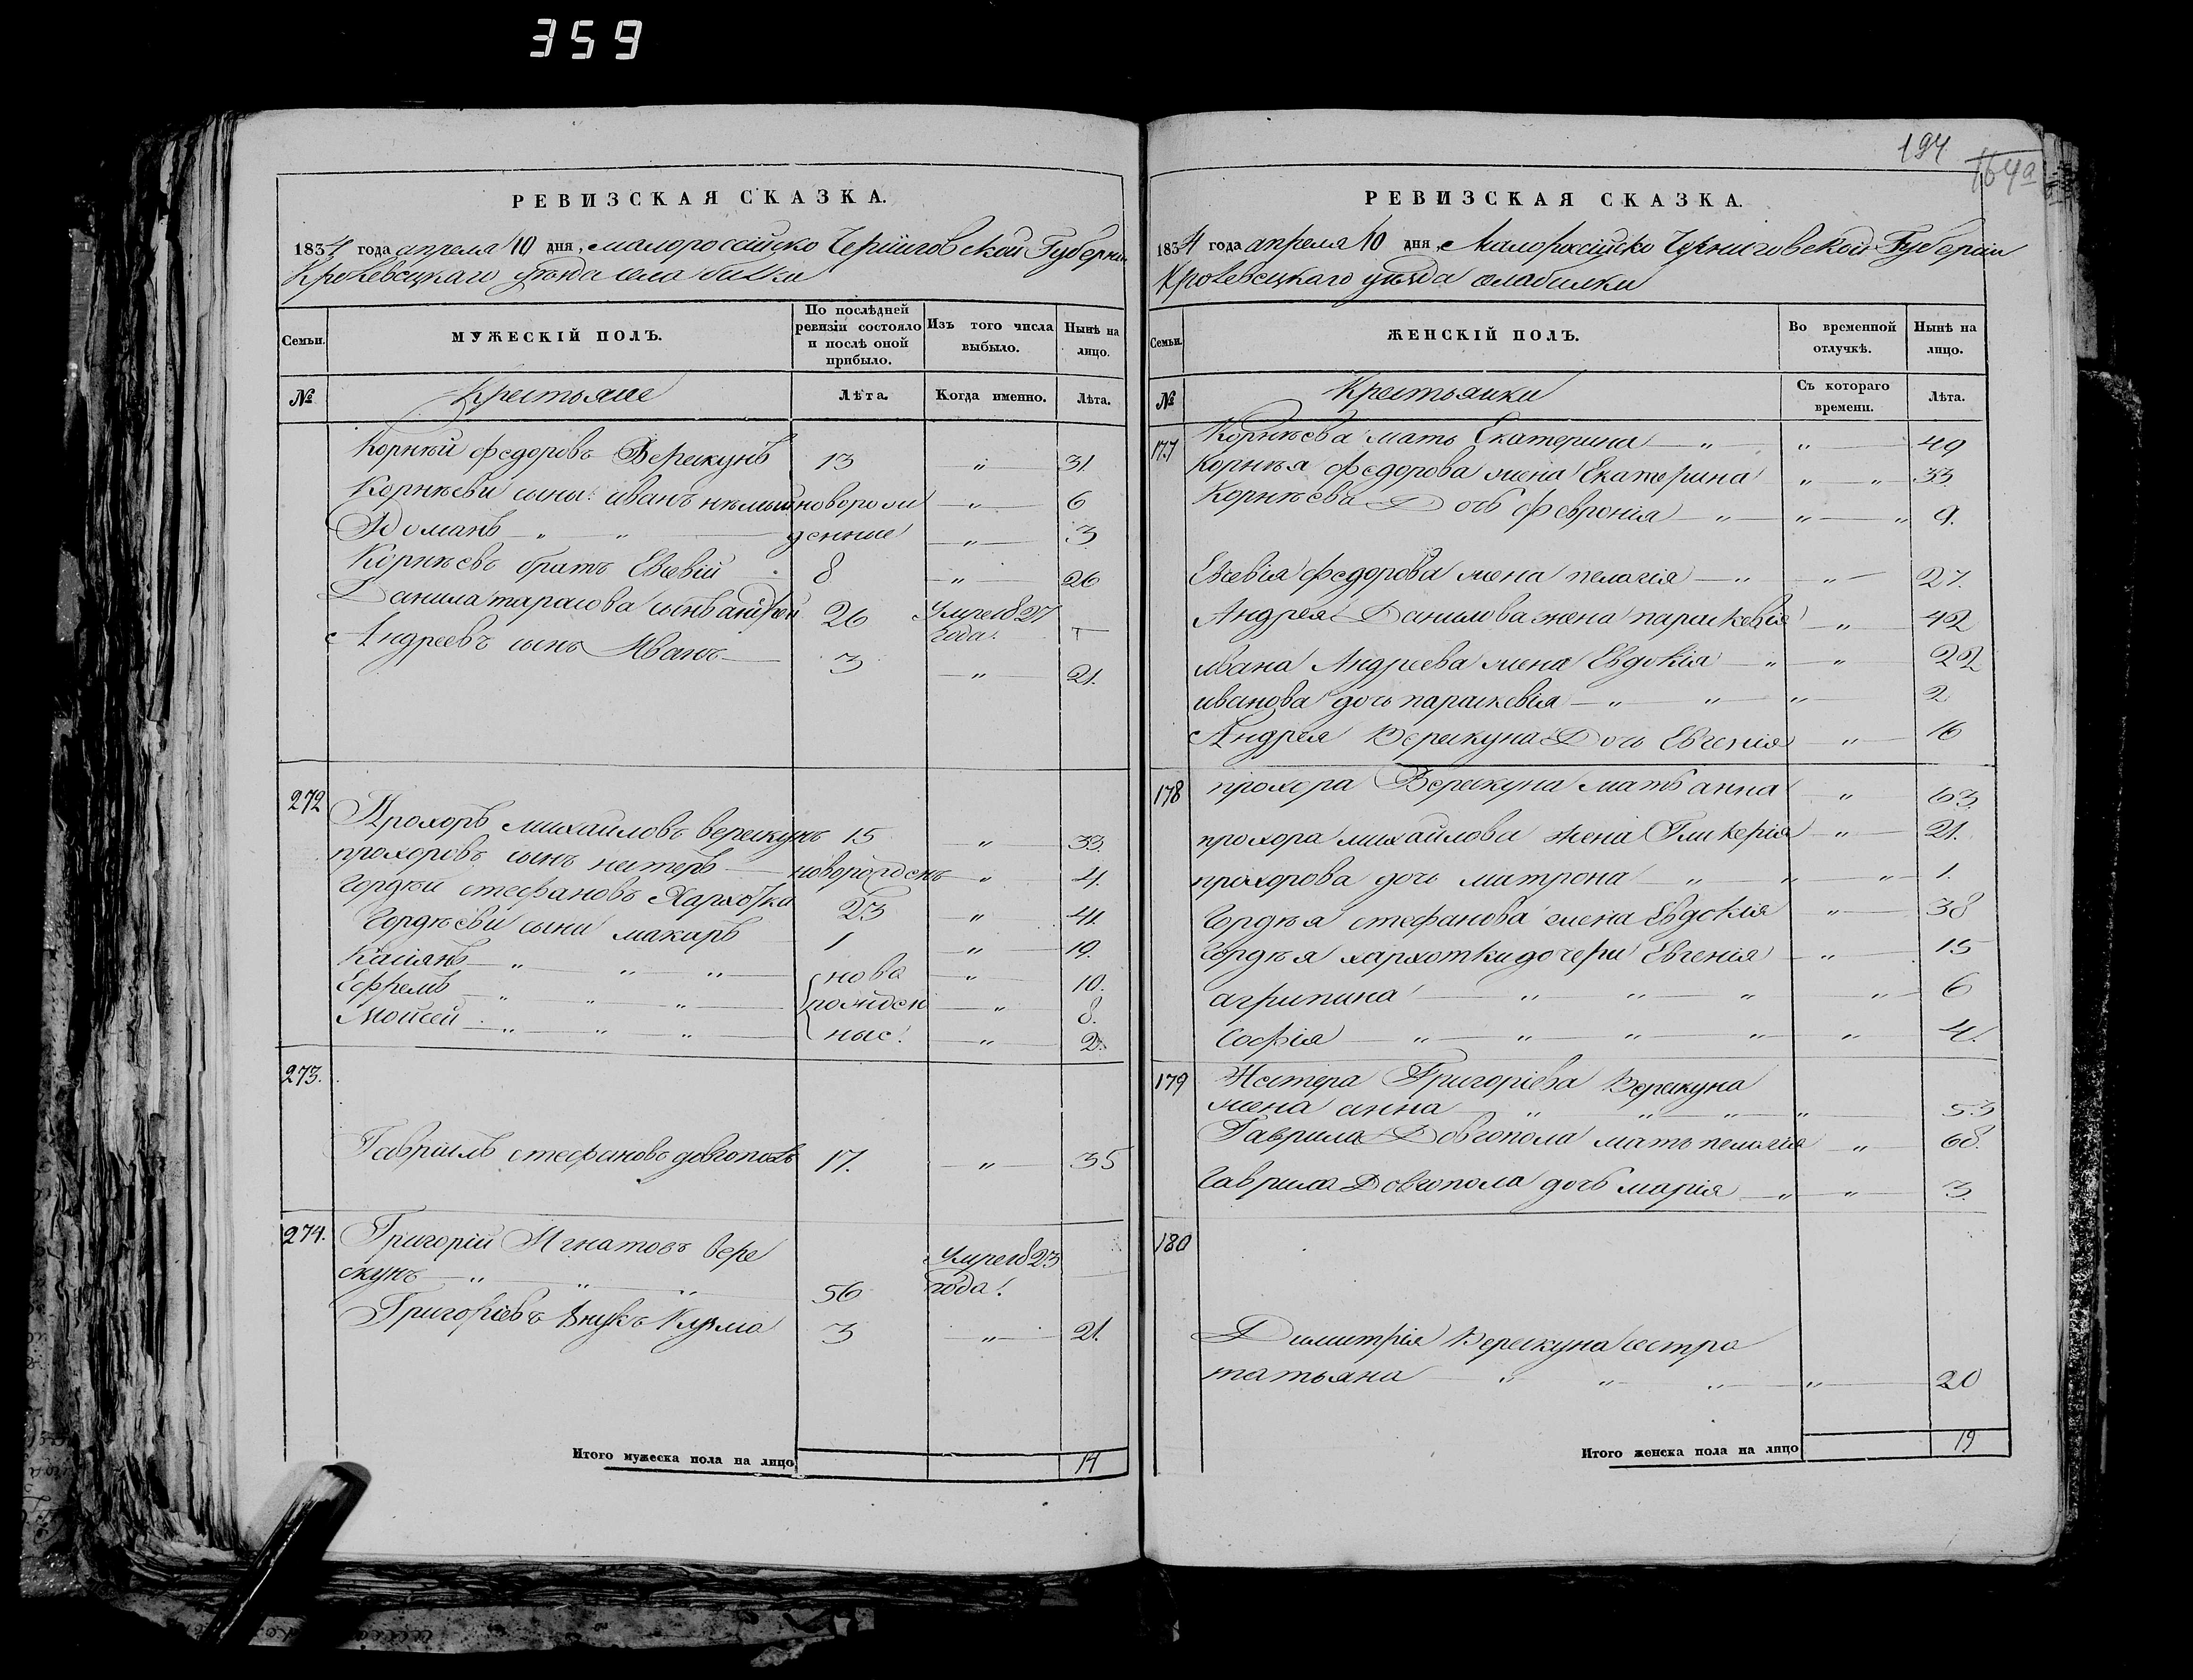 359
РЕВИЗСКАЯ СКАЗКА.
1834 года апреля 10 дня, малороссійско Черниговской Губерніи
Кролевецкаго уѣзда села билки
Семьи.
МУЖЕСКІЙ ПОЛЪ.
По послѣдней ревизіи состояло и послѣ оной прибыло.
Изъ того числа выбыло.
Нынѣ на лицо.
№
Крестьяне
Лѣта.
Когда именно.
Лѣта.
Корнѣй федоровъ Верескунъ 13 " 31.
Корнѣеви сыны: иванъ нѣмый новорож " 6
Домань " " денные " 3
Корнѣевъ братъ Евсевій 8 " 26
Данила тарасова сынъ андрей 26 умре 1827 года.
Андреевъ сынъ Иванъ 3 " 21.
272
Прохоръ михайловъ верескунъ 15 " 33.
прохоровъ сынъ нестеръ новорожденъ " 4.
Гордѣй стефановъ Хархотка 23 " 41.
Гордѣеви сыни макаръ 1 " 19.
Касіянъ " " " ново " 10.
Ефремъ " " " рожден " 8.
Моисей " " " ные. " 2.
273.
Гавріилъ стефановъ довгополъ 17. " 35
274.
Григорій Игнатовъ вере
скунъ " " " 56 умре 1823 года.
Григоріевъ внукъ Кузма 3 " 21.
Итого мужеска пола на лицо 14
194
164а
РЕВИЗСКАЯ СКАЗКА.
1834 года апреля 10 дня, Малороссійско Черниговской Губерніи
Кролевецкаго уѣзда села билки
Семьи.
ЖЕНСКІЙ ПОЛЪ.
Во временной отлучкѣ.
Нынѣ на лицо.
№
Крестьянки
Съ котораго времени.
Лѣта.
177 Корнѣева мать Екатерина " " 49
Корнѣя федорова жена Екатерина " " 33
Корнѣева Дочь Февронія " " " 9.
Евсевія федорова жена пелагія " " 27.
Андрея Данилова жена параскевія " 42
ивана Андреева жена Евдокія " " 22
иванова дочь параскевія " " " 2
Андрея Верескуна Дочь Евгенія " 16
178 прохора Верескуна мать анна " 63.
прохора михайлова жена Гликерія " 21.
прохорова дочь матрона " " " 1.
Гордѣя стефанова жена Евдокія " 38
Гордѣя хархотки дочери Евгенія " 15
агрипина " " " " 6
Софія " " " " " 4.
179 Нестера Григоріева Верескуна
жена анна " " " " 53
Гаврила Довгопола мать пелагія " 68.
Гаврила Довгопола дочь марія " " 3.
180
Димитрія Верескуна сестра
татьяна " " " " 20
Итого женска пола на лицо 19